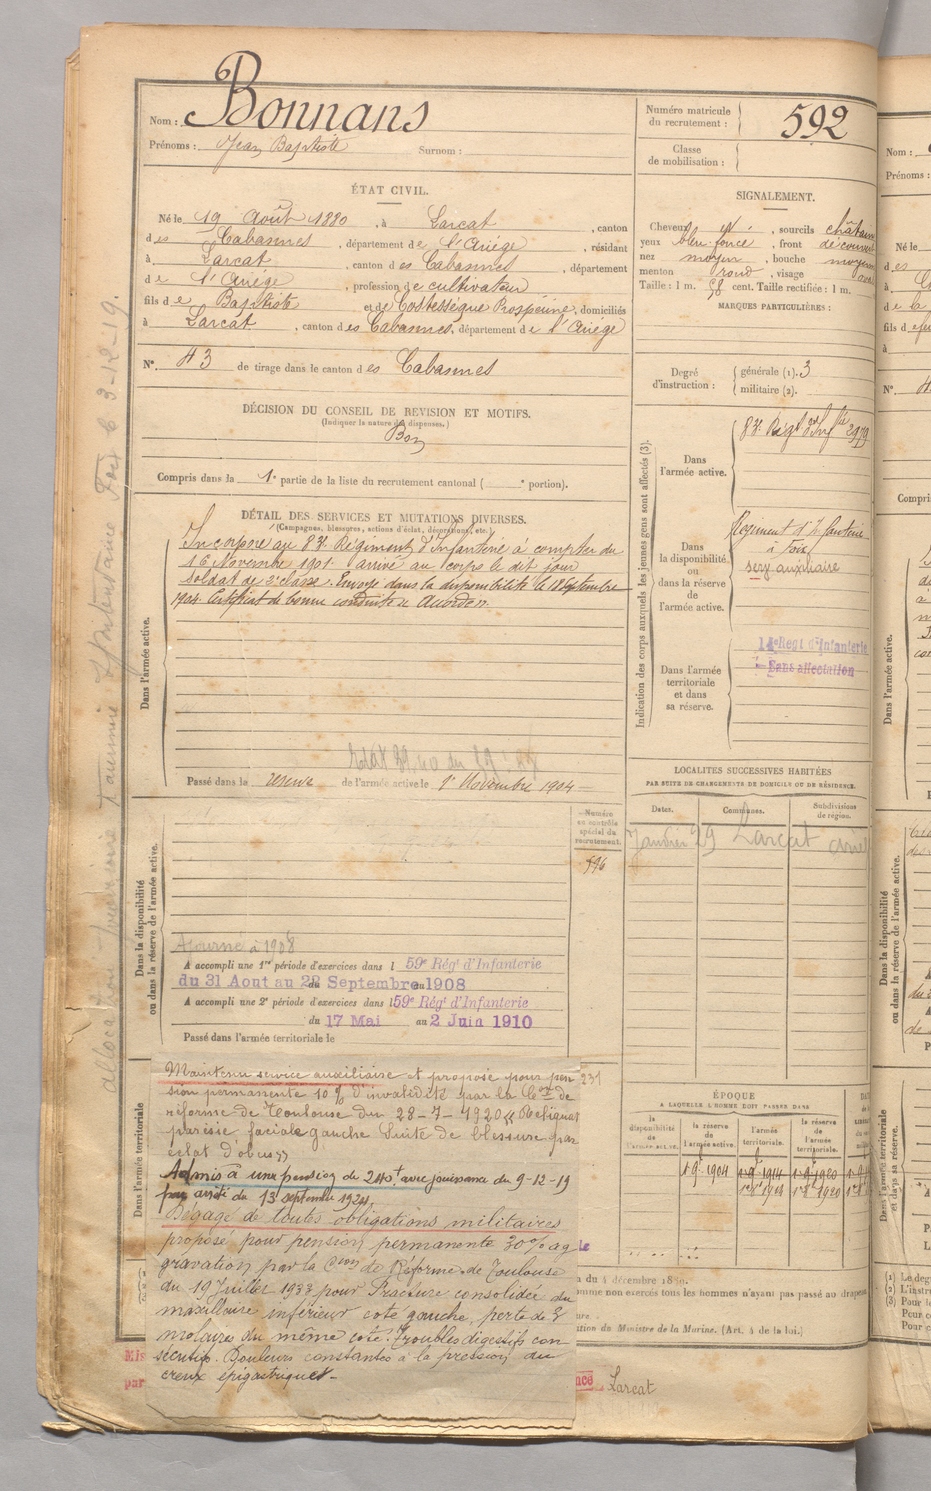 Nom : Bonnans
Prénoms : Jean Baptiste Surnom :
Numéro matricule
du recrutement : 592
Classe
de mobilisation :
ÉTAT CIVIL.
Né le 19 Août 1880, à Larcat, canton
des Cabannes, département de l'Ariége, résidant
à Larcat, canton des Cabannes, département
de l'Ariége, profession de cultivateur
fils de Baptiste et de Costessèque Prospérine, domiciliés
à Larcat, canton des Cabannes, département de l'Ariége
N° 43 de tirage dans le canton des Cabannes
SIGNALEMENT.
Cheveux , sourcils châtains
yeux bleu foncé, front découvert
nez moyen, bouche moyenne
menton rond, visage oval
Taille : 1 m. 58 cent. Taille rectifiée : 1 m.
MARQUES PARTICULIÈRES :
DÉCISION DU CONSEIL DE REVISION ET MOTIFS.
(Indiquer la nature des dispenses.)
Bon
Compris dans la 1e partie de la liste du recrutement cantonal ( e portion).
Degré
d'instruction :
générale (1). 3
militaire (2).
DÉTAIL DES SERVICES ET MUTATIONS DIVERSES.
(Campagnes, blessures, actions d'éclat, décorations, etc.)
Dans l'armée active.
Incorporé au 83e Régiment d'Infanterie à compter du
16 Novembre 1901 arrivé au corps le dit jour
soldat de 2e classe. Envoyé dans la disponibilité le 18 Septembre
1904. Certificat de bonne conduite " Accordé ".
Passé dans la réserve de l'armée active le 1er Novembre 1904
Indication des corps auxquels les jeunes gens sont affectés (3).
Dans
l'armée active.
83e Régt d'Infie
Dans
la disponibilité
ou
dans la réserve
de
l'armée active.
Régiment d'Infanterie
à Foix
serv auxiliaire
Dans l'armée
territoriale
et dans
sa réserve.
14e Regt d'Infanterie
Sans affectation
LOCALITÉS SUCCESSIVES HABITÉES
PAR SUITE DE CHANGEMENTS DE DOMICILE OU DE RÉSIDENCE.
Dates. Communes. Subdivisions
de région.
Janvier 29 Larcat
Numéro
au contrôle
spécial du
recrutement.
596
Dans la disponibilité
ou dans la réserve de l'armée active.
Ajourné à 1908
A accompli une 1re période d'exercices dans l 59e Régt d'Infanterie
du 31 Aout au 22 Septembre 1908
A accompli une 2e période d'exercices dans l 59e Régt d'Infanterie
du 17 Mai au 2 Juin 1910
Passé dans l'armée territoriale le
Dans l'armée territoriale
Maintenu service auxiliaire et proposé pour pen
sion permanente 10% d'invalidité par la Con de
réforme de Toulouse du 28-7-1920 " Reliquat
parisie faciale gauche suite de blessure par
éclat d'obus "
Admis à une pension de 240f avec jouissance du 9-12-19
par arrêté du 13 septembre 1921.
Dégagé de toutes obligations militaires
proposé pour pension permanente 30% ag
gravation par la Cion de Réforme de Toulouse
du 19 Juillet 1933 pour Fracture consolidée du
maxillaire inférieur côté gauche, perte de 3
molaires du même côté. Troubles digestifs con
sécutifs. Douleurs constantes à la pression du
creux épigastrique.
231
ÉPOQUE
A LAQUELLE L'HOMME DOIT PASSER DANS
la
disponibilité
de
l'armée active.
la réserve
de
l'armée active.
l'armée
territoriale.
la réserve
de
l'armée
territoriale.
1-9-1904
du 4 décembre 1890.
omme non exercés tous les hommes n'ayant pas passé au drapeau
du Ministre de la Marine. (Art. 4 de la loi.)
Larcat
allocation Intendance Foix 3-12-19.
Nom :
Prénoms :
Né le
des
fils d
N°
Dans l'armée active.
Dans la disponibilité
ou dans la réserve de l'armée active.